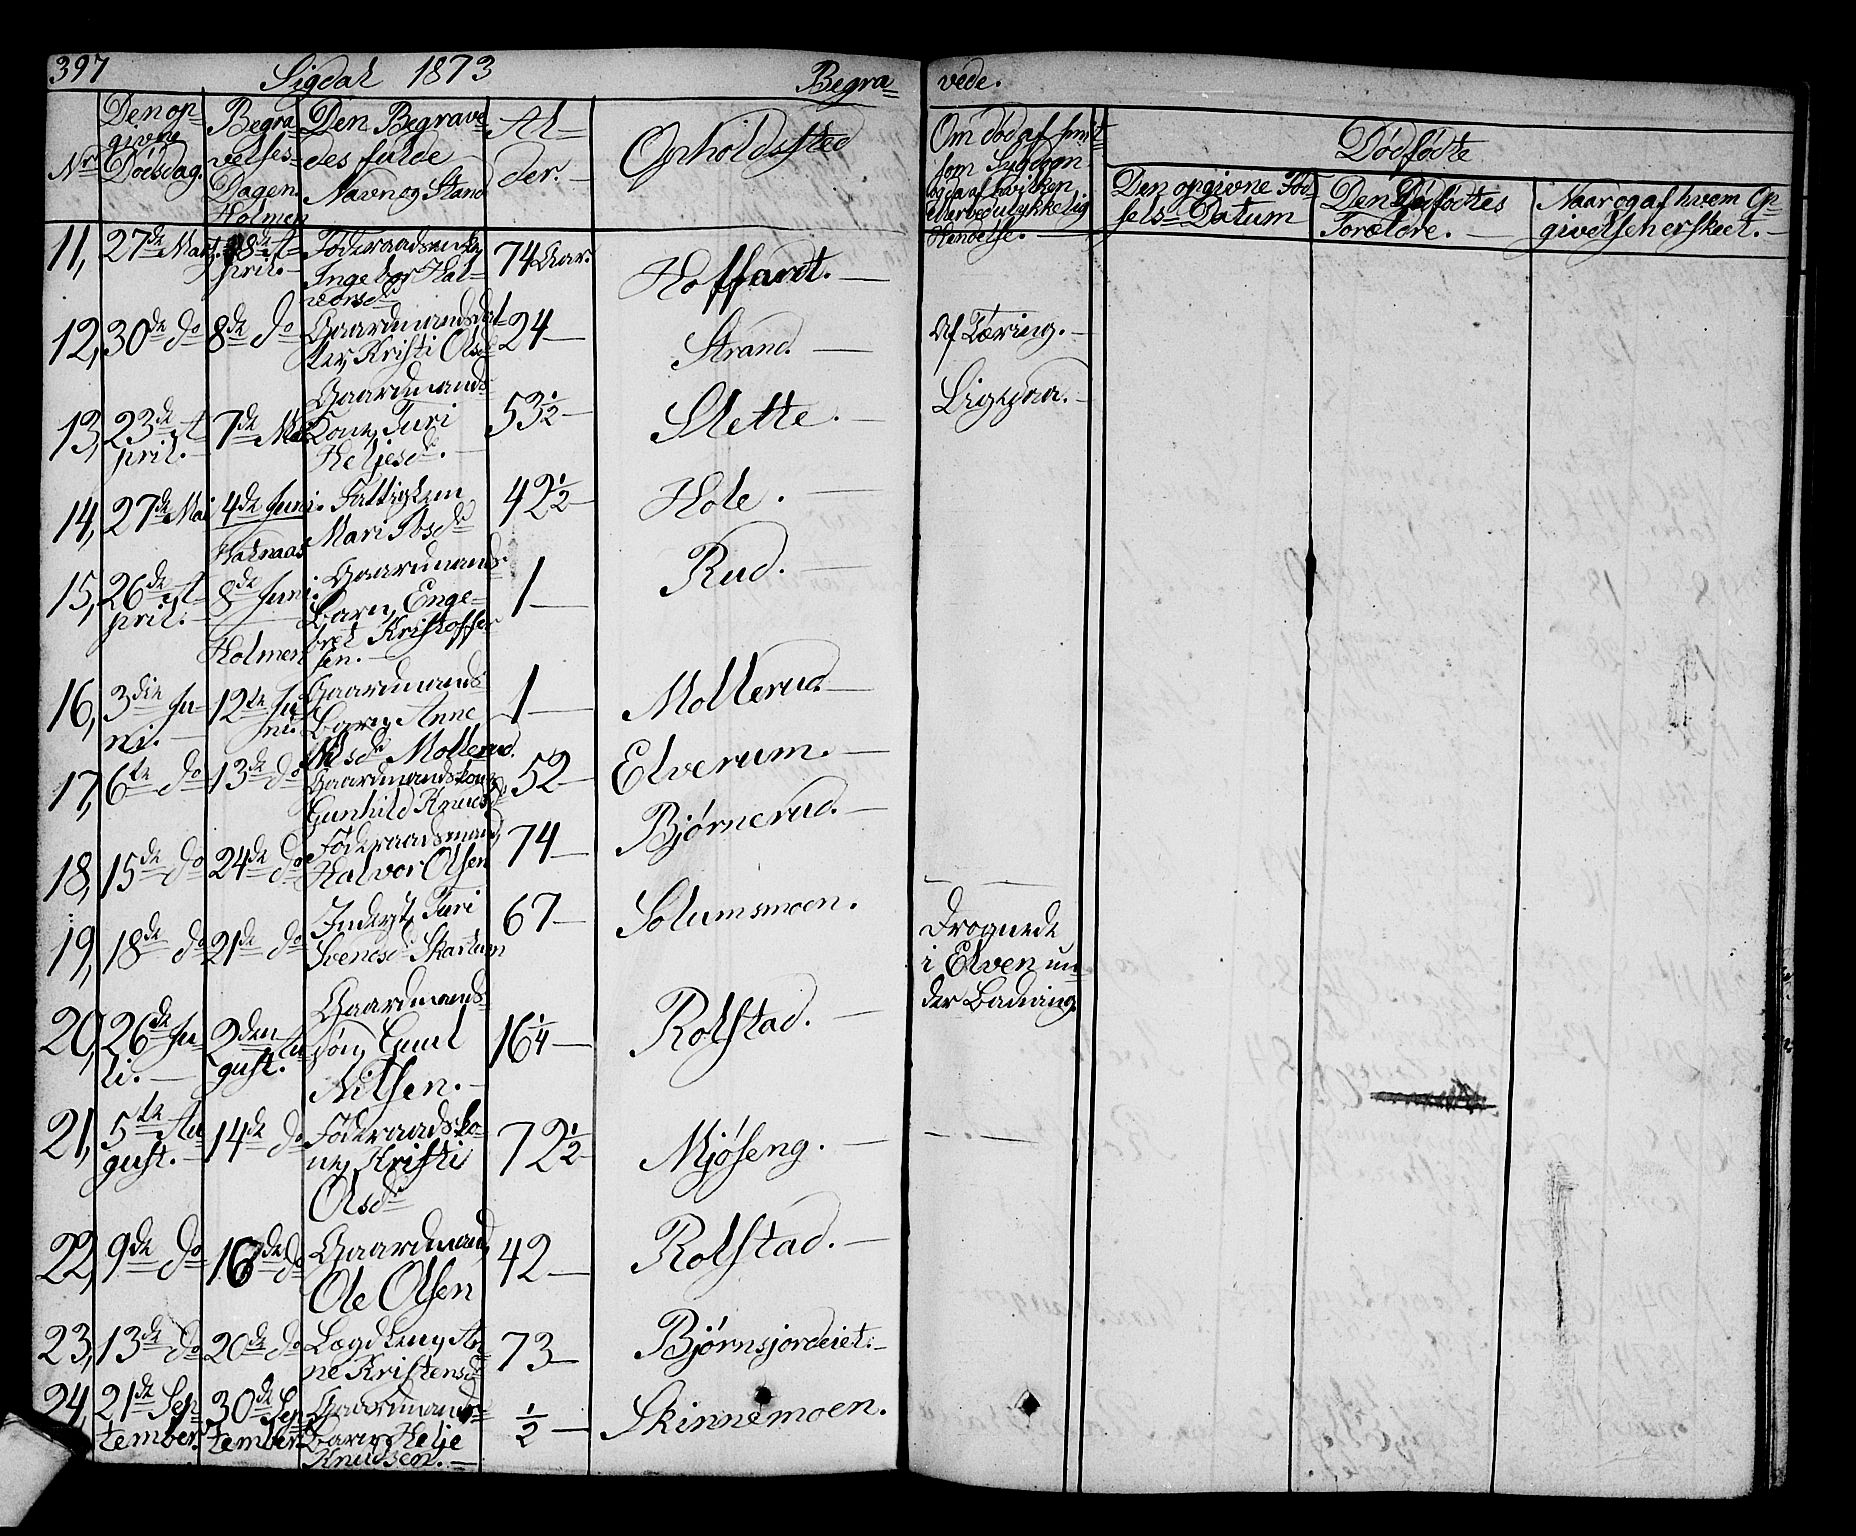 397 Sigdal 1873 Begra= vede.
Nr Den op= givne Dødsdag. Begra= velses= Dagen. Den Begrave= des fulde Navn og Stand Al= der. Opholdssted
Om død af smit som Sygdom
Dødfødte
Den opgivne Fød sels= Datum Den Dødfødtes Forældre. Naar og af hvem Op= givelsen er skeet.
Hendelse.
Holmen
11, 27de Marts. 8de A= pril. Føderaadsenke, Ingebor Hal= vorsd. 74 Aar. Hoffardt.
12, 30de do 8de do Gaardmandsdat= ter, Kristi Olsd. 24 Strand. Af Tæring.
13, 23de A= pril. 7de Mai Gaardmands= kone, Turi Heljesd. 53 1/2 Slette. Liggua.
14, 27de Mai 4de Juni. Fattiglem Mari Ibsd. 42 1/2 Hole.
Haknaas
15, 26de A= pril. 8de Juni. Gaardmands= barn, Enge= bret Kristoffer sen. 1 Rud.
Holmen
16, 3die Ju= ni. 12te Ju ni. Gaardmands barn, Anne Nilsd. Mollerud. 1 Mollerud
17, 6te do 13de do Gaardmandskone Gunhild Knudsd. 52 Elverum.
18, 15de do 24de do Føderaadsmand, Halvor Olsen 74 Bjørnerud.
19, 18de do 21de do Inderst, Turi Svensd. Skartum 67 Solumsmoen.
20, 26de Ju= li. 2den Au gust. Gaardmands= søn, Emil Nilsen. 16 1/4 Rolstad. Drognede i Elven un= der Badning
21, 5te Au gust. 14de do Føderaadsko= ne, Kristi Olsd. 72 1/2 Mjøseng.
22, 9de do 16de do Gaardmand, Ole Olsen 42 Rolstad.
23, 13de do 20de do Lægdslem, An ne Kristensd. 73 Bjørnsjordeiet.
24, 21de Sep tember. 30de Sep tember. Gaardmands= barn, Helje Knudsen. 1/2 Skinnemoen.